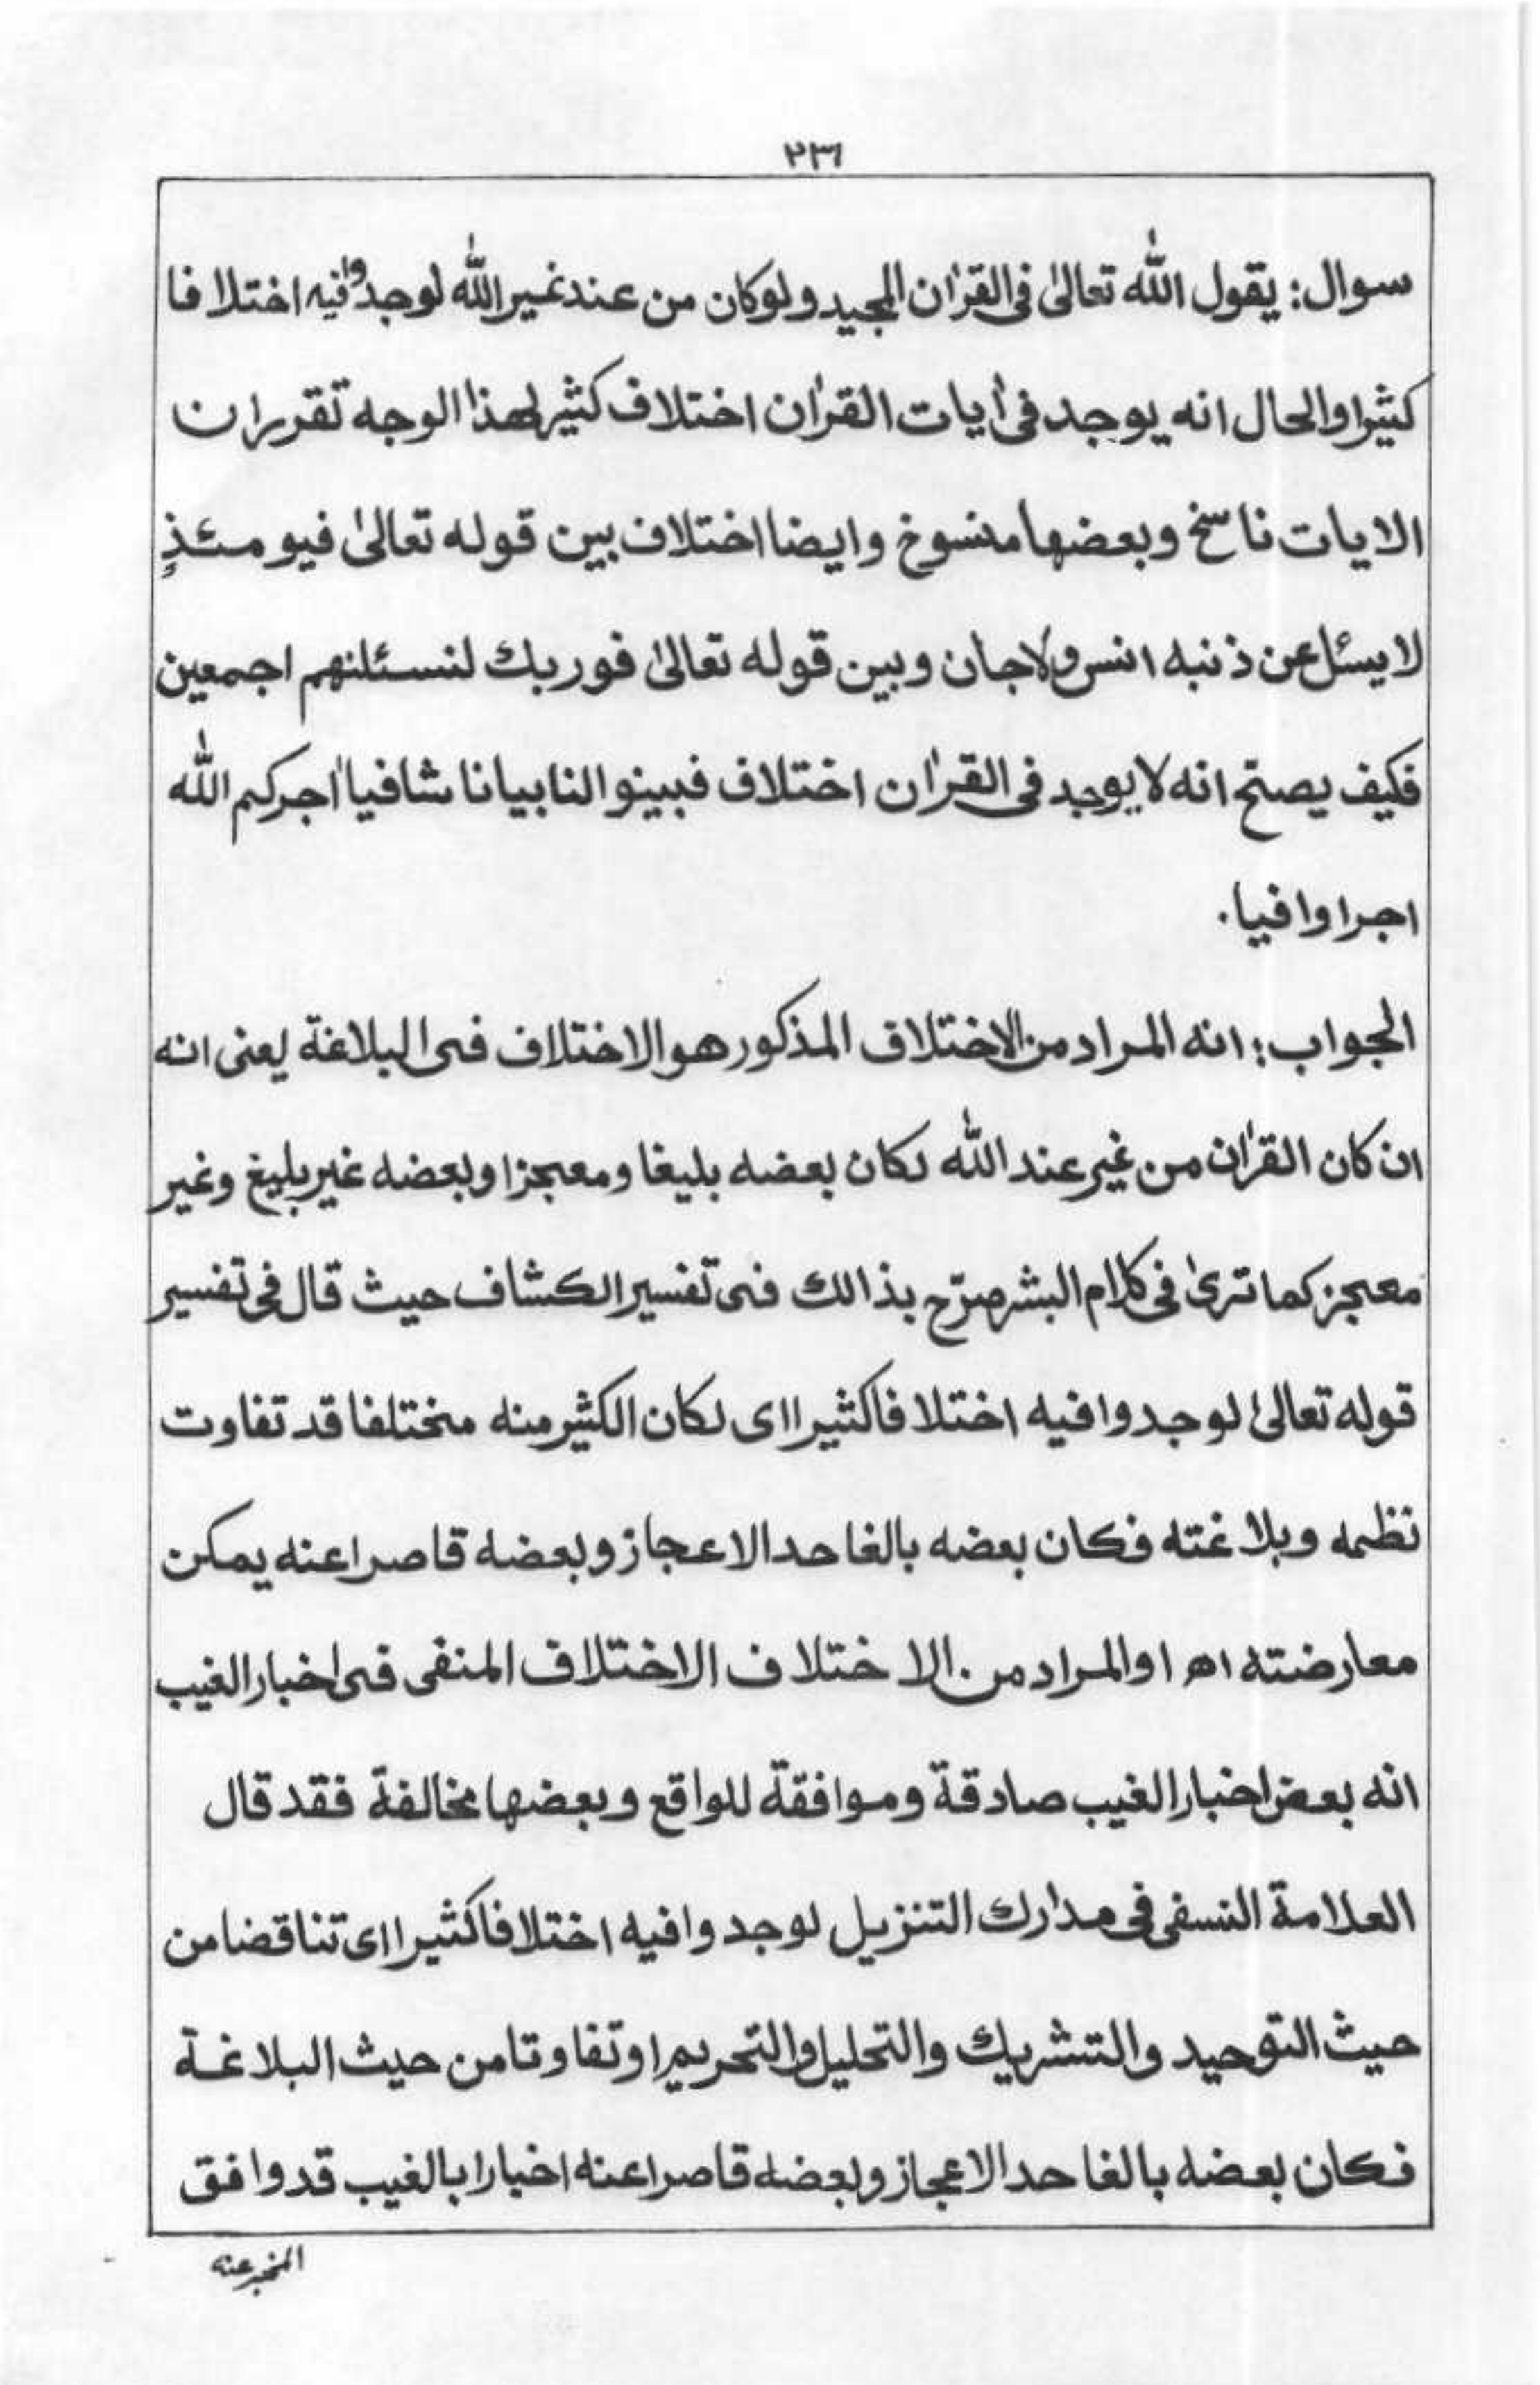 ٢٣١
سوال: يقول الله تعالىٰ فى القرٰان المجيد ولوكان من عند غير الله لوجدوا فيه اختلافا
كثيرا والحال انه يوجد فى اٰيات القرٰان اختلاف كثير لهذا الوجه تقرر ان
الايات ناسخ وبعضها منسوخ وايضا اختلاف بين قوله تعالىٰ فيومئذٍ
لا يسئل عن ذنبه انس ولاجان وبين قوله تعالىٰ فوربك لنسئلنهم اجمعين
فكيف يصتح انه لا يوجد فى القرٰان اختلاف فبينوا لنا بيانا شافيا اٰجركم الله
اجرا وافيا.
الجواب: انه المراد من الاختلاف المذكور هو الاختلاف فى البلاغة يعنى انه
ان كان القرٰان من غير عند الله لكان بعضه بليغا ومعجزا وبعضه غير بليغ وغير
معجز كما ترىٰ فى كلام البشر صرّح بذالك فى تفسير الكشاف حيث قال فى تفسير
قوله تعالىٰ لوجدوا فيه اختلافا كثيرا اى لكان الكثير منه مختلفا قد تفاوت
نظمه وبلاغته فكان بعضه بالغا حد الاعجاز وبعضه قاصرا عنه يمكن
معارضته اھ او المراد من الاختلاف الاختلاف المنفى فى اخبار الغيب
انه بعض اخبار الغيب صادقة وموافقة للواقع وبعضها مخالفة فقد قال
العلامة النسفى فى مدارك التنزيل لوجدوا فيه اختلافا كثيرا اى تناقضا من
حيث التوحيد والتشريك والتحليل والتحريم او تفاوتا من حيث البلاغة
فكان بعضه بالغا حد الاعجاز وبعضه قاصرا عنه اخبارا بالغيب قد وافق
المخبر عنه